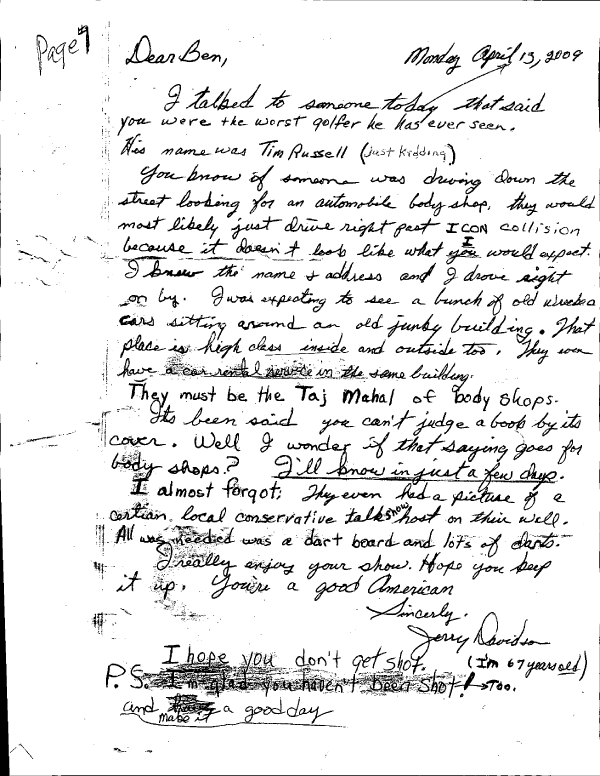 Page #1
Dear Ben,
Monday April 13, 2009
I talked to someone today that said
you were the worst golfer he has ever seen.
His name was Tim Russell (just kidding)
You know if someone was driving down the
street looking for an automobile body shop, they would
most likely just drive right past ICON collision
because it doesn't look like what I you would expect.
I knew the name & address and I drove right
on by. I was expecting to see a bunch of old wrecked
cars sitting around an old junky building. That
place is high class inside and outside too. They even
have a car rental service in the same building.
They must be the Taj Mahal of body shops.
Its been said you can't judge a book by its
cover. Well I wonder if that saying goes for
body shops? I'll know in just a few days.
I almost forgot: They even had a picture of a
certian local conservative talk show host on their well.
All was needed was a dart board and lots of darts.
I really enjoy your show. Hope you keep
it up. You're a good American
Sincerly.
Jerry Davidson
(I'm 67 years old)
I hope you don't get shot.
P.S. I'm glad you haven't been shot! → Too.
and make it a good day